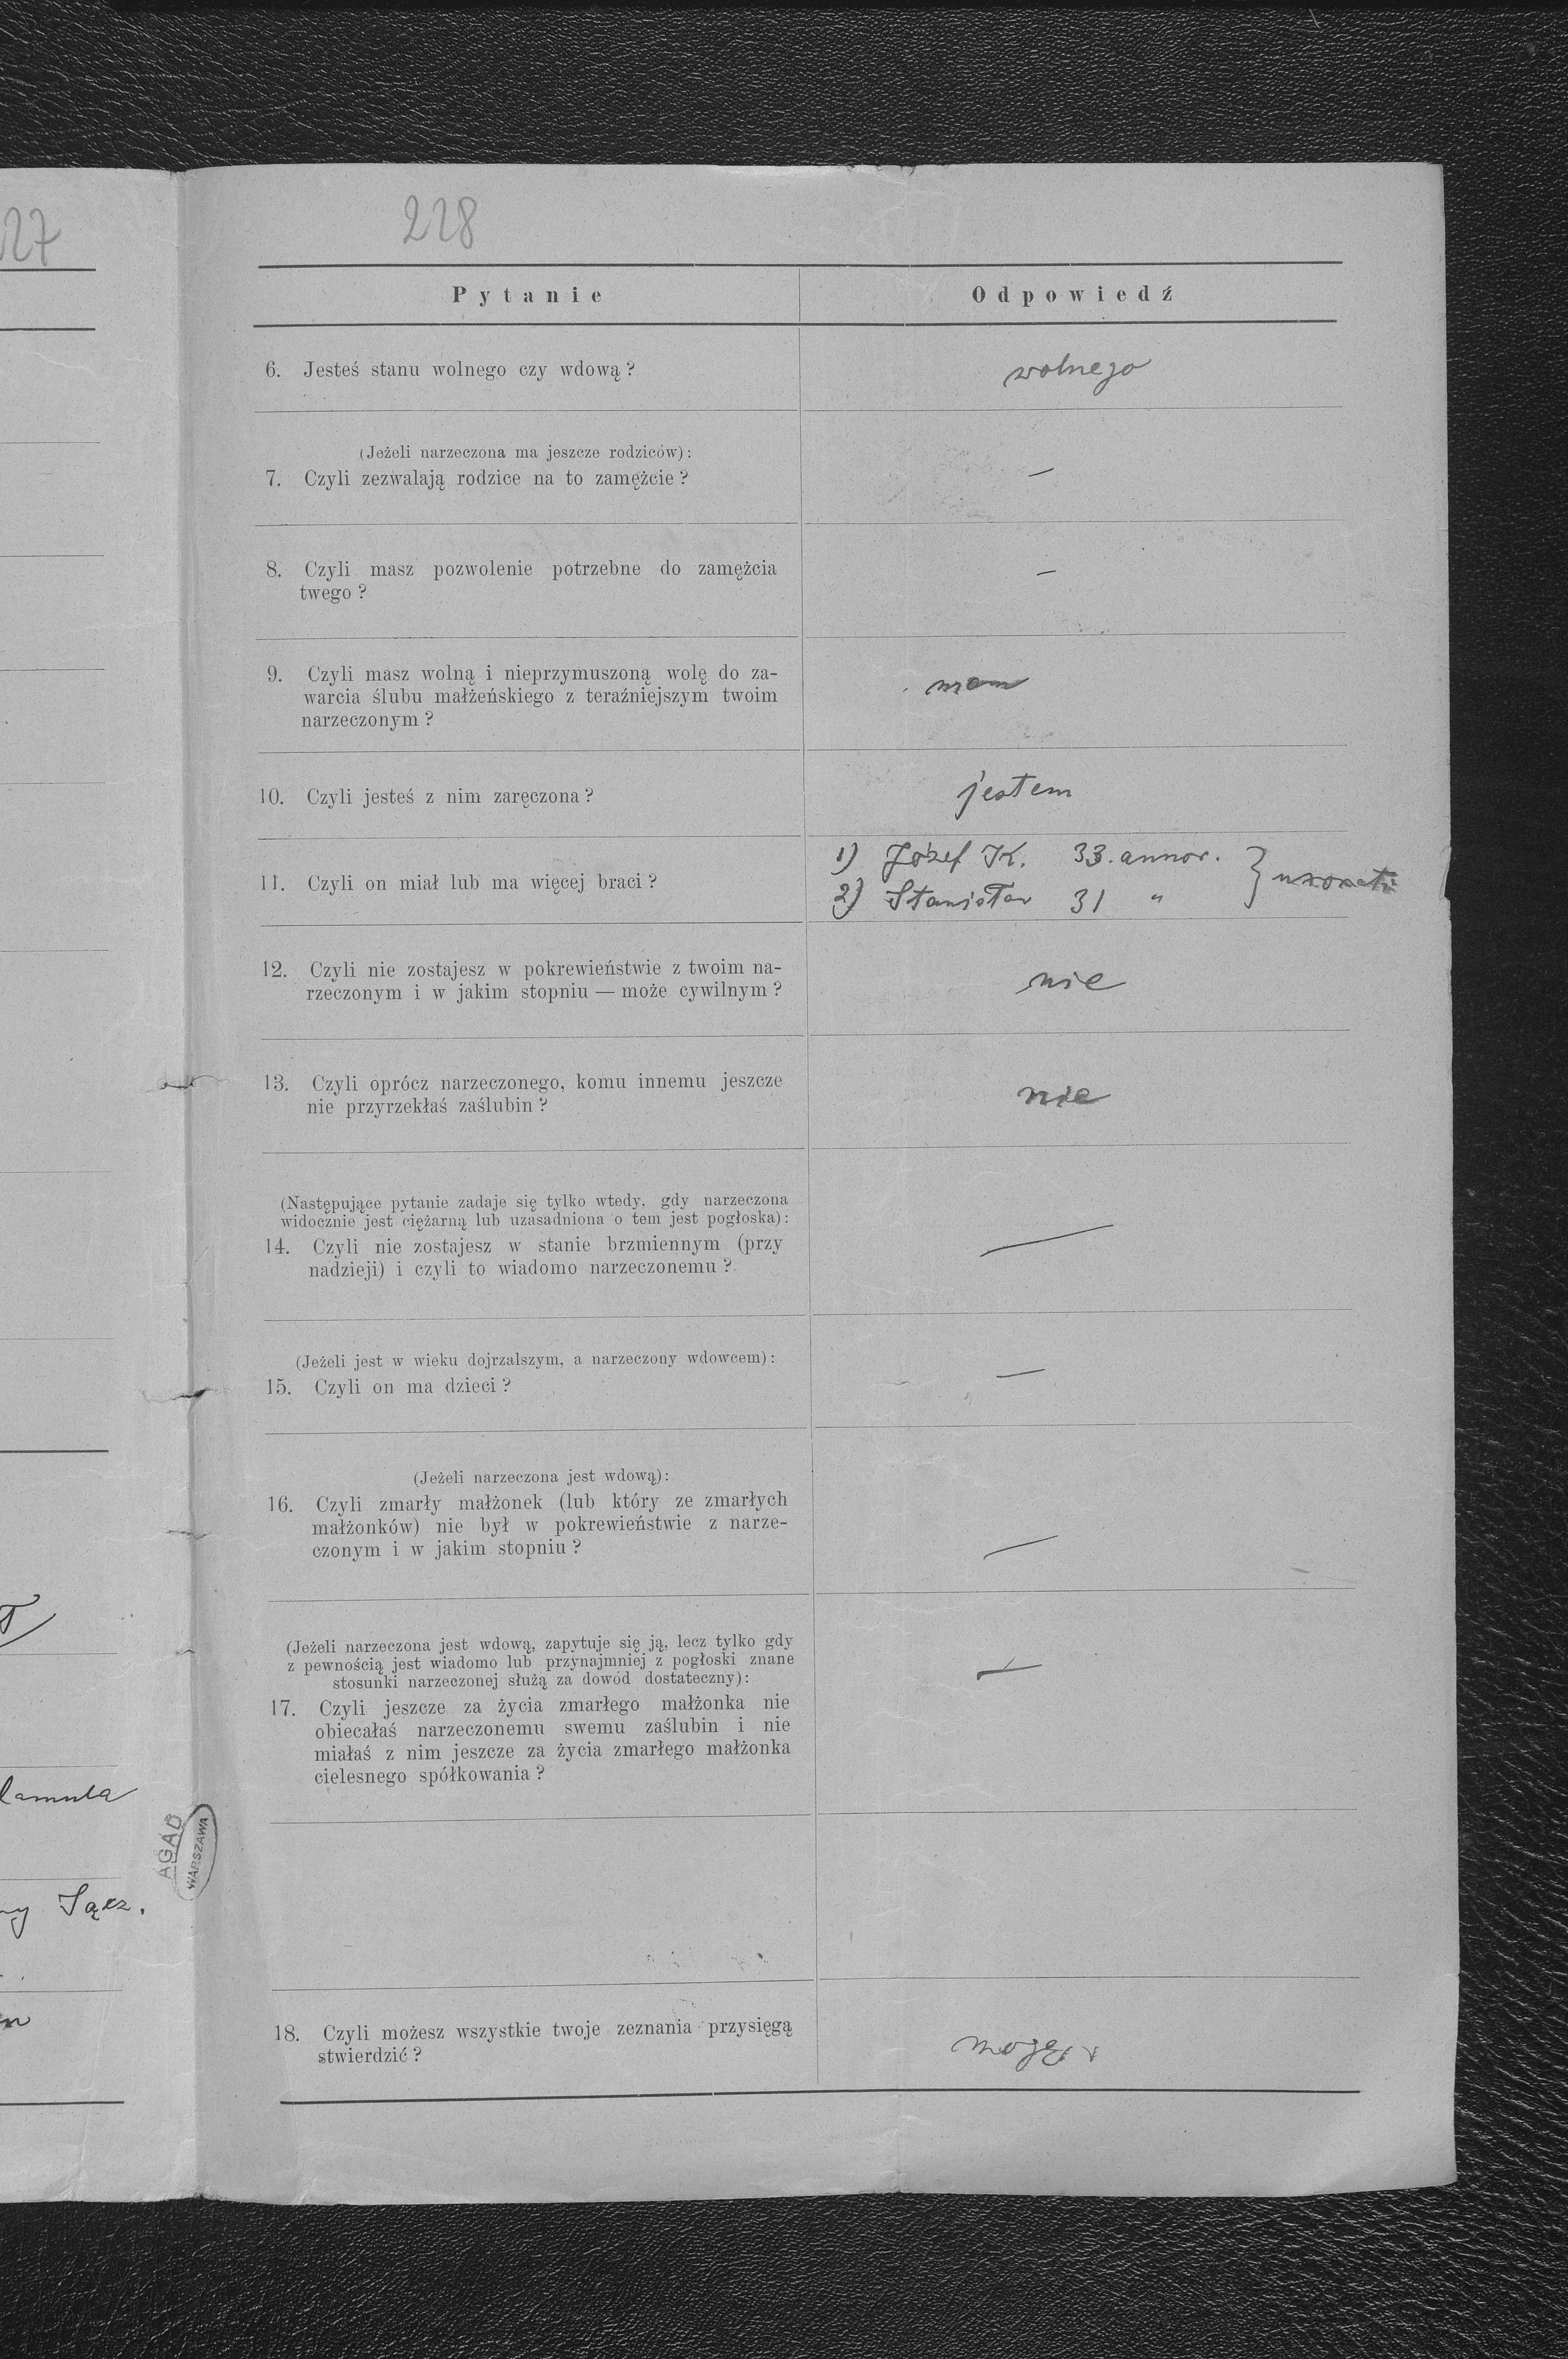 27
228
Pytanie
Odpowiedź
6. Jesteś stanu wolnego czy wdową?
wolnego
(Jeżeli narzeczona ma jeszcze rodziców):
7. Czyli zezwalają rodzice na to zamężcie?
—
8. Czyli masz pozwolenie potrzebne do zamężcia
twego?
—
9. Czyli masz wolną i nieprzymuszoną wolę do za-
warcia ślubu małżeńskiego z teraźniejszym twoim
narzeczonym?
mam
10. Czyli jesteś z nim zaręczona?
jestem
11. Czyli on miał lub ma więcej braci?
1) Józef K. 33. annor.
2) Stanisław 31 "
} uxorati
12. Czyli nie zostajesz w pokrewieństwie z twoim na-
rzeczonym i w jakim stopniu — może cywilnym?
nie
13. Czyli oprócz narzeczonego, komu innemu jeszcze
nie przyrzekłaś zaślubin?
nie
(Następujące pytanie zadaje się tylko wtedy, gdy narzeczona
widocznie jest ciężarną lub uzasadniona o tem jest pogłoska):
14. Czyli nie zostajesz w stanie brzmiennym (przy
nadzieji) i czyli to wiadomo narzeczonemu?
—
(Jeżeli jest w wieku dojrzalszym, a narzeczony wdowcem):
15. Czyli on ma dzieci?
—
(Jeżeli narzeczona jest wdową):
16. Czyli zmarły małżonek (lub który ze zmarłych
małżonków) nie był w pokrewieństwie z narze-
czonym i w jakim stopniu?
—
(Jeżeli narzeczona jest wdową, zapytuje się ją, lecz tylko gdy
z pewnością jest wiadomo lub przynajmniej z pogłoski znane
stosunki narzeczonej służą za dowód dostateczny):
17. Czyli jeszcze za życia zmarłego małżonka nie
obiecałaś narzeczonemu swemu zaślubin i nie
miałaś z nim jeszcze za życia zmarłego małżonka
cielesnego spółkowania?
—
AGAD
WARSZAWA
Sącz.
18. Czyli możesz wszystkie twoje zeznania przysięgą
stwierdzić?
mogę